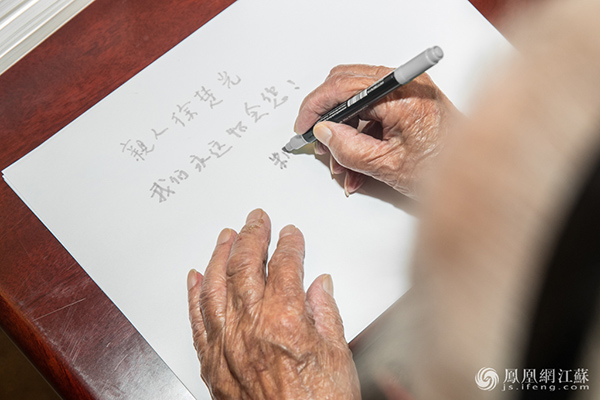 親人徐楚光
我们永远怀念您!
鳳凰網江蘇
js.ifeng.com